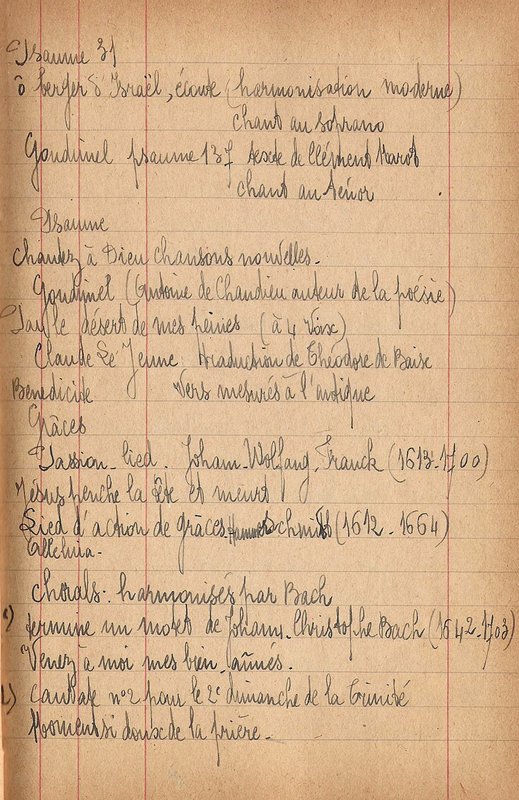 Psaume 31
ô berger d'Israël, écoute (harmonisation moderne)
chant au soprano
Goudimel psaume 137 texte de Clément Marot
chant au ténor
Psaume
Chantez à Dieu chansons nouvelles.
Goudimel (Antoine de Chandieu auteur de la poésie)
Par le désert de mes peines (à 4 voix)
Claude Le Jeune. traduction de Théodore de Baise
Benedicide vers mesurés à l'antique
Grâces
Passion-lied. Joham-Wolfang. Franck (1613-1700)
Jésus penche la tête et meurt
Lied d'action de grâces. Hammerschmidt (1612-1664)
Alleluia-
Chorals: harmonisés par Bach
termine un motet de Johams-Christophe Bach (1642-1703)
Venez à moi mes bien-aimés.
cantate n°2 pour le 2e dimanche de la Trinité
Moment si doux de la prière-